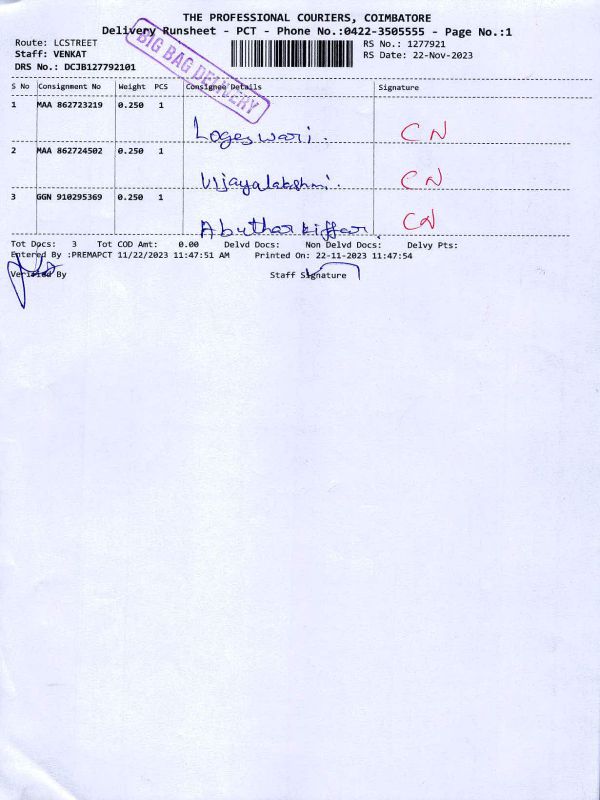 THE PROFESSIONAL COURIERS, COIMBATORE
Delivery Runsheet - PCT - Phone No.:0422-3505555 - Page No.:1
Route: LCSTREET
Staff: VENKAT
DRS No.: DCJB127792101
RS No.: 1277921
RS Date: 22-Nov-2023
BIG BAG DELIVERY
S No Consignment No Weight PCS Consignee Details Signature
1 MAA 862723219 0.250 1
Logeswari. CN
2 MAA 862724502 0.250 1
Vijayalakshmi. CN
3 GGN 910295369 0.250 1
Abuthar kiffar. CN
Tot Docs: 3 Tot COD Amt: 0.00 Delvd Docs: Non Delvd Docs: Delvy Pts:
Entered By :PREMAPCT 11/22/2023 11:47:51 AM Printed On: 22-11-2023 11:47:54
Verified By Staff Signature